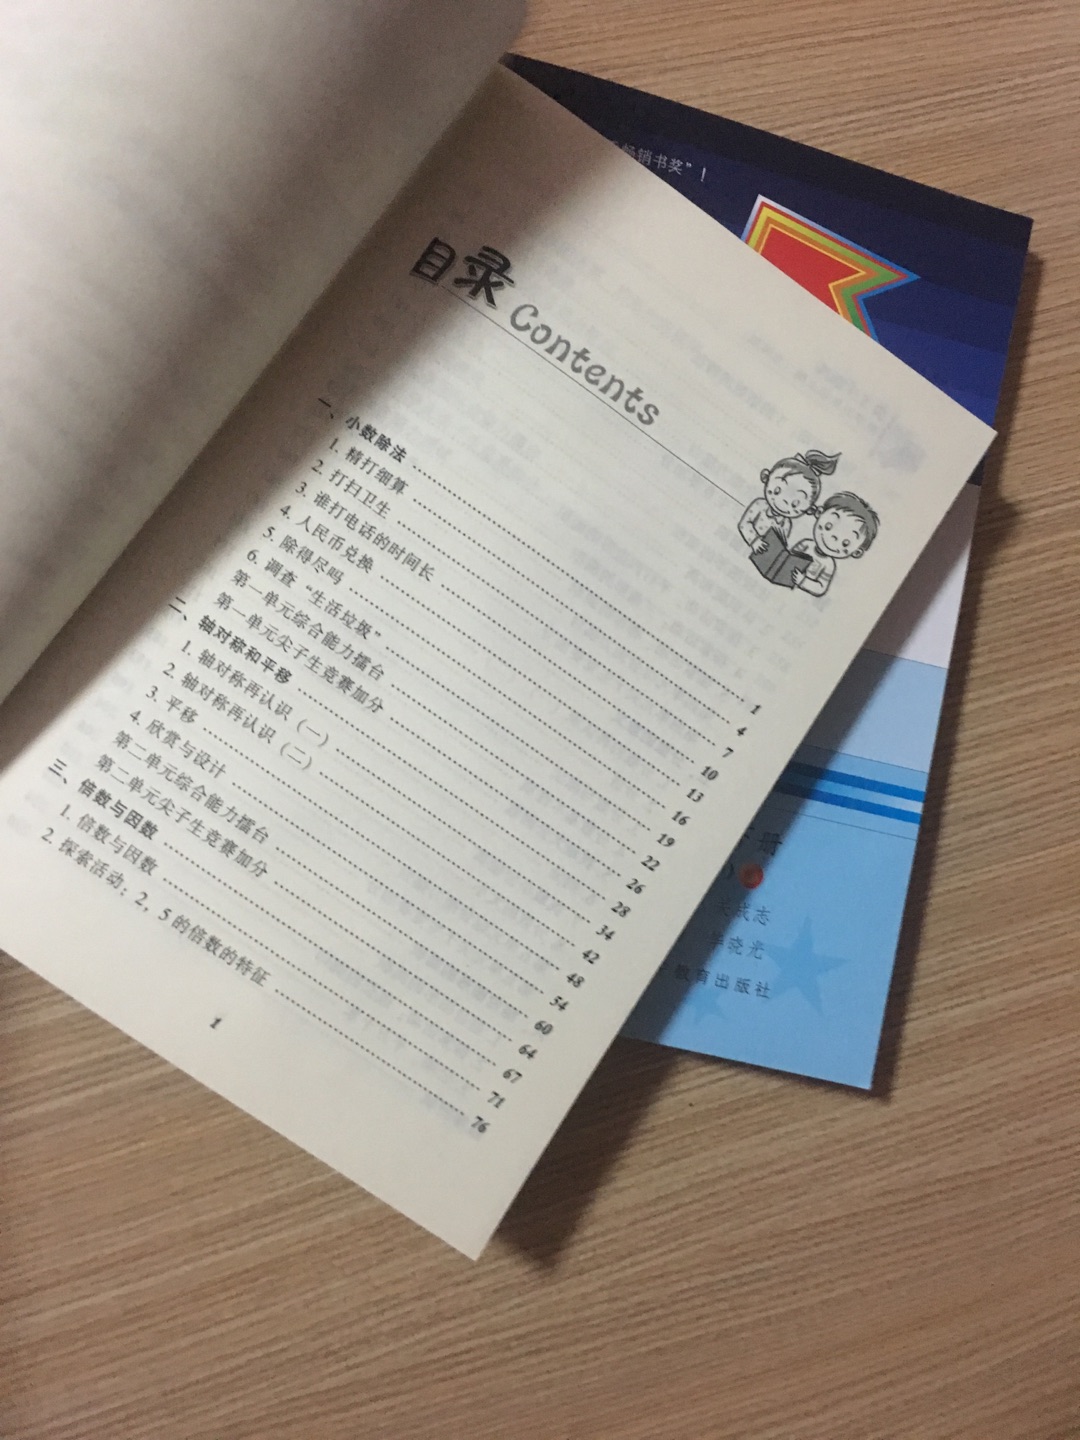 目录 Contents
一、小数除法 1
1. 精打细算 4
2. 打扫卫生 7
3. 谁打电话的时间长 10
4. 人民币兑换 13
5. 除得尽吗 16
6. 调查“生活垃圾” 19
第一单元综合能力擂台 22
第一单元尖子生竞赛加分 26
二、轴对称和平移 28
1. 轴对称再认识（一） 34
2. 轴对称再认识（二） 42
3. 平移 48
4. 欣赏与设计 54
第二单元综合能力擂台 60
第二单元尖子生竞赛加分 64
三、倍数与因数 67
1. 倍数与因数 71
2. 探索活动：2，5的倍数的特征 76
1
畅销书奖”！
下册
成志
晓光
教育出版社